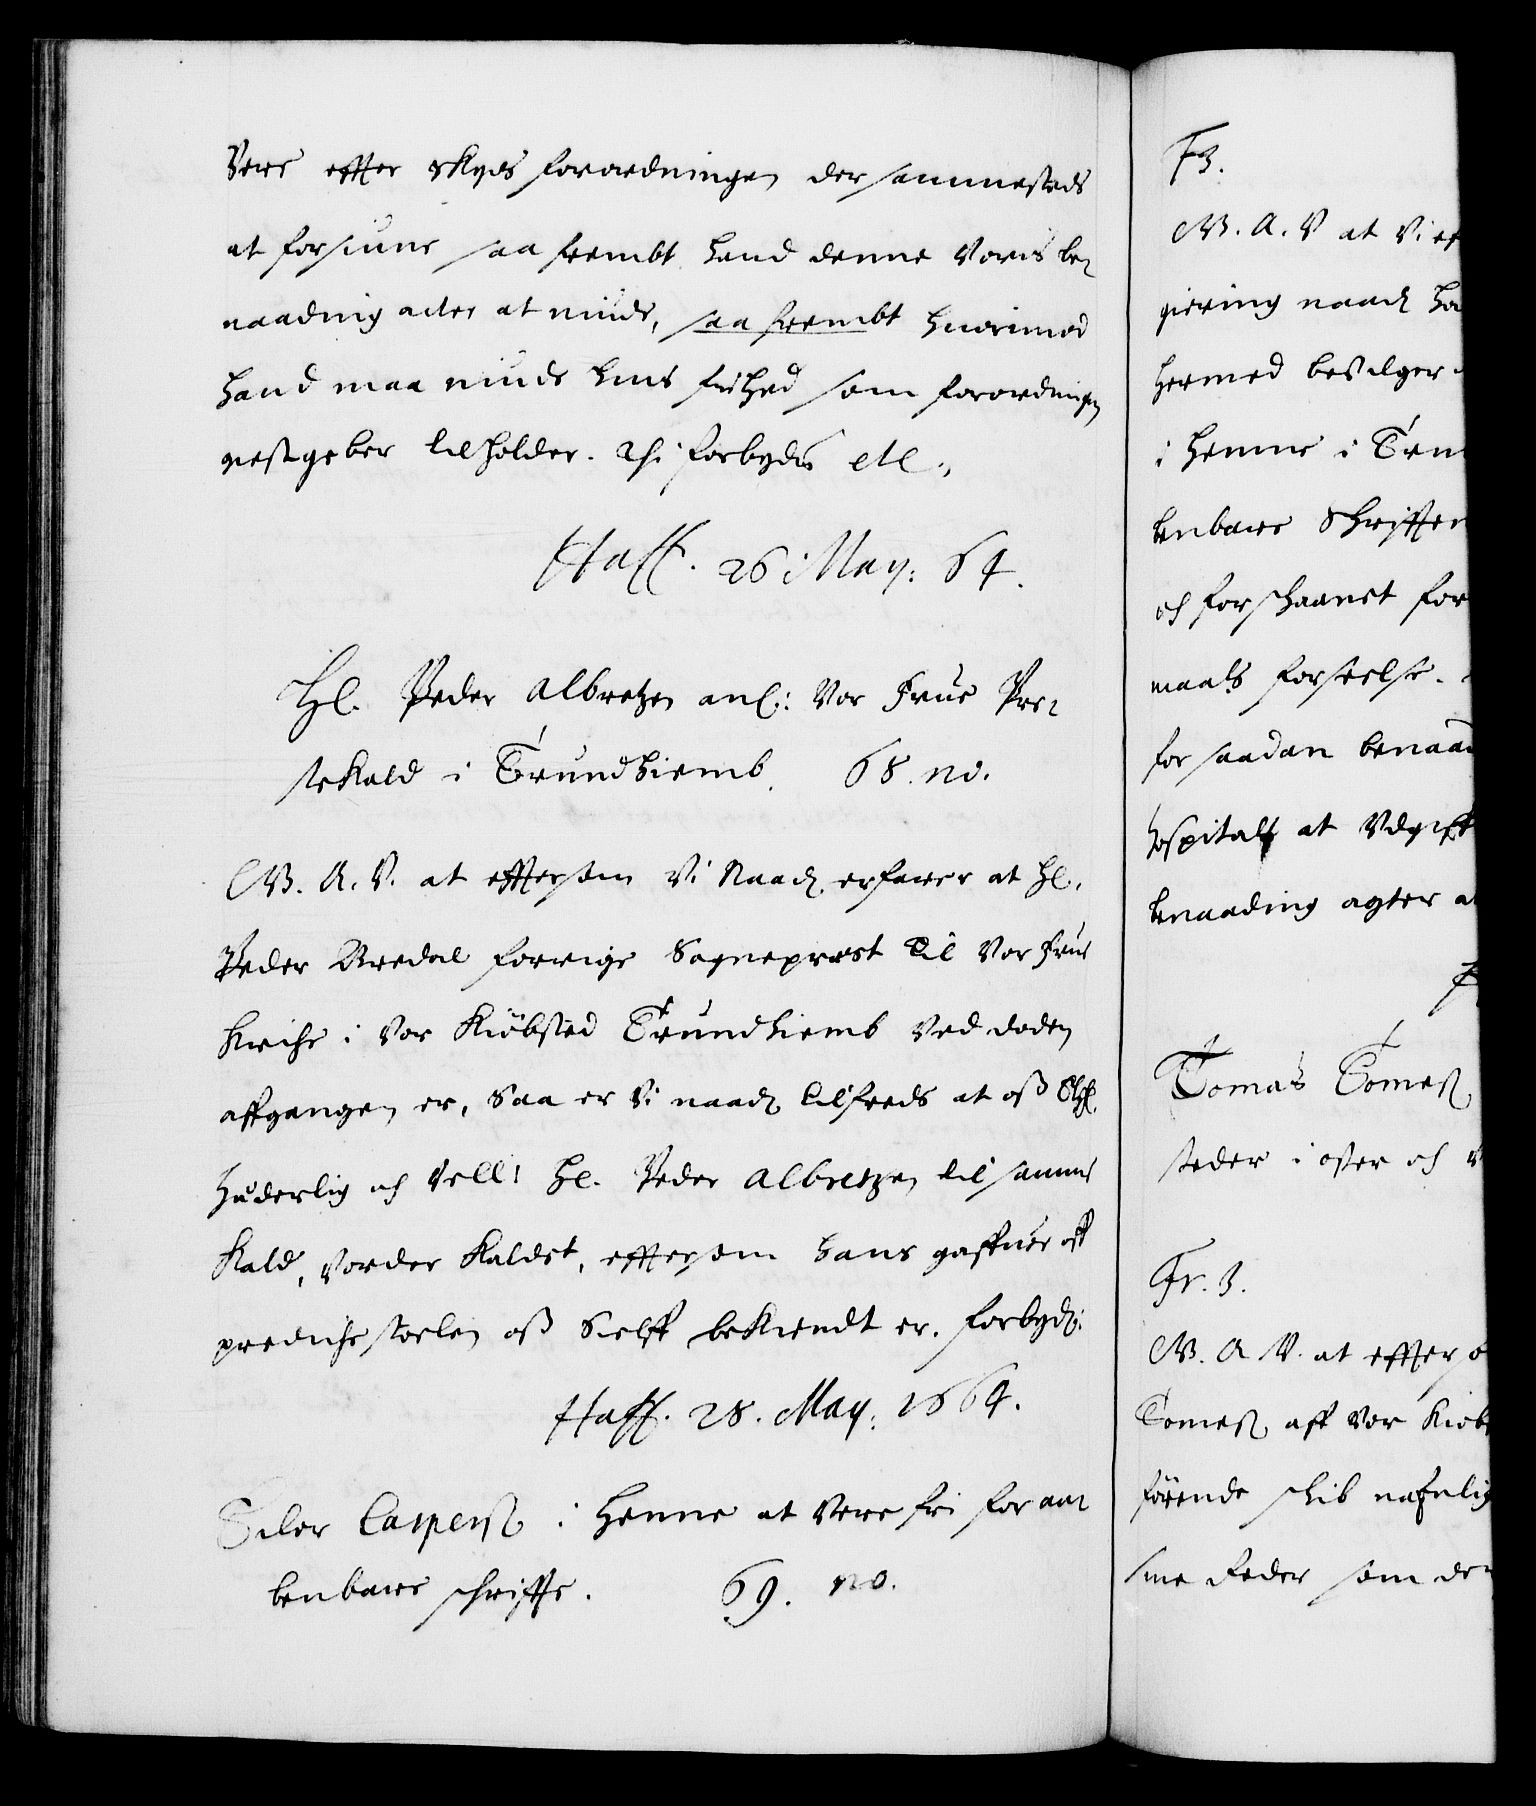 Vere effter skyds forordningen der sammesteds
at forsiune saa frembt hand denne Voris be¬
naading acter at niude, saa frembt huorimod
hand maa niude huis frihed som forordningen
gestgeber tilholder. Thi forbydes etc.
Haff. 26 May: 64.
Hl. Peder Albretzen anl: Vor Frue Pre¬
stekald i Trundhiemb. 68. no.
G. A. V. at effersom Vi Naad. erfarer at Hl.
Peder Aredal forrige Sogneprest til Vor Frue
Kirche i Vor Kiøbsted Trundhiemb ved døden
affgangen er, Saa er Vi naad. tilfreds at oß Elschl.
Hæderlig och Vell: Hl. Peder Albretzen til samme
Kald, vorder Kaldet, effersom hans gaffuer aff
prediche stoelen oß Sielff bekiendt er. Forbyd:
Haff. 28. May: 1664.
Siler Casperß i Henne at Vere fri for aa¬
benbare schriffte. 69. no.
F3.
G. A. V at Vi ef
giering naad. ha
hermed bevilger
i Henne i Trun
benbare Schriffter
och forschaanet for
maals forseelse.
for saadan benaad
Hospital at Vdgiff
benaading agter a
Tomas Tomeß,
steder i øster och v
Fr. 3.
G. A V. at effterso
Tomeß, aff Vor Kiøb
førende schib nafnlig
sine steder som der